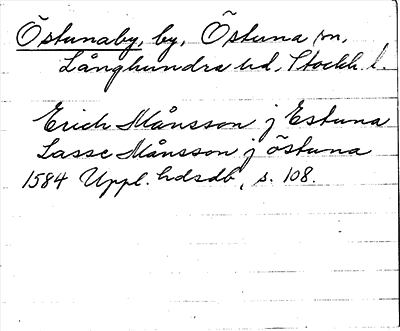 Östunaby, by, Östuna sn,
Långhundra hd, Stockh. l.
Erich Månsson j Estuna
Lasse Månsson j östuna
1584 Uppl. hdsdb, s. 108.